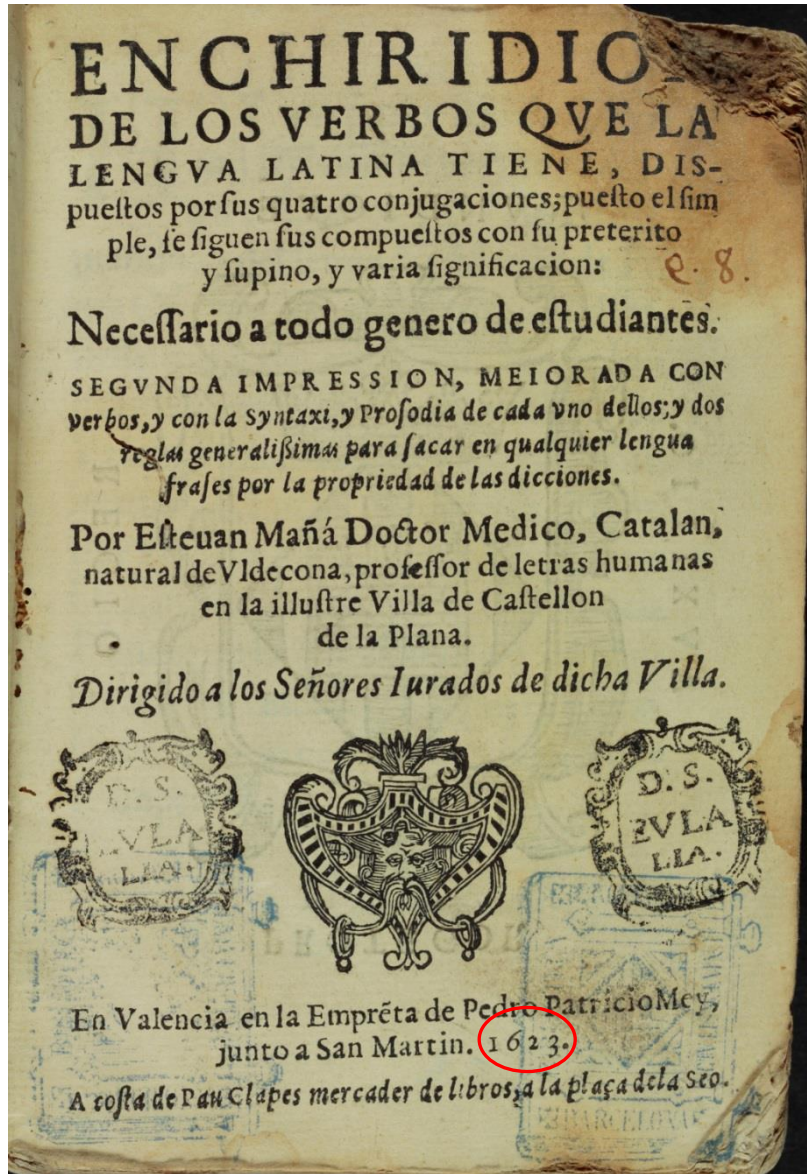 ENCHIRIDIO
DE LOS VERBOS QVE LA
LENGVA LATINA TIENE, DIS-
pueſtos por ſus quatro conjugaciones; pueſto el ſim
ple, ſe ſiguen ſus compueſtos con ſu preterito
y ſupino, y varia ſignificacion:
Q. 8.
Neceſſario a todo genero de eſtudiantes.
SEGVNDA IMPRESSION, MEIORADA CON
verbos, y con la Syntaxi, y Proſodia de cada vno dellos; y dos
reglas generalißimas para ſacar en qualquier lengua
fraſes por la propriedad de las dicciones.
Por Eſteuan Mañá Doctor Medico, Catalan,
natural de Vldecona, profeſſor de letras humanas
en la illuſtre Villa de Caſtellon
de la Plana.
Dirigido a los Señores Iurados de dicha Villa.
D. S.
EVLA
LIA.
D. S.
EVLA
LIA.
En Valencia en la Emprẽta de Pedro Patricio Mey,
junto a San Martin. 1623.
A coſta de Pau Clapes mercader de libros, a la plaça de la Seo.
BARCELONA